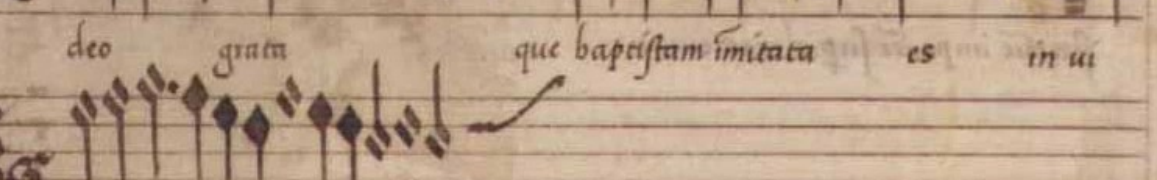 deo grata que baptistam īmitata es in ui